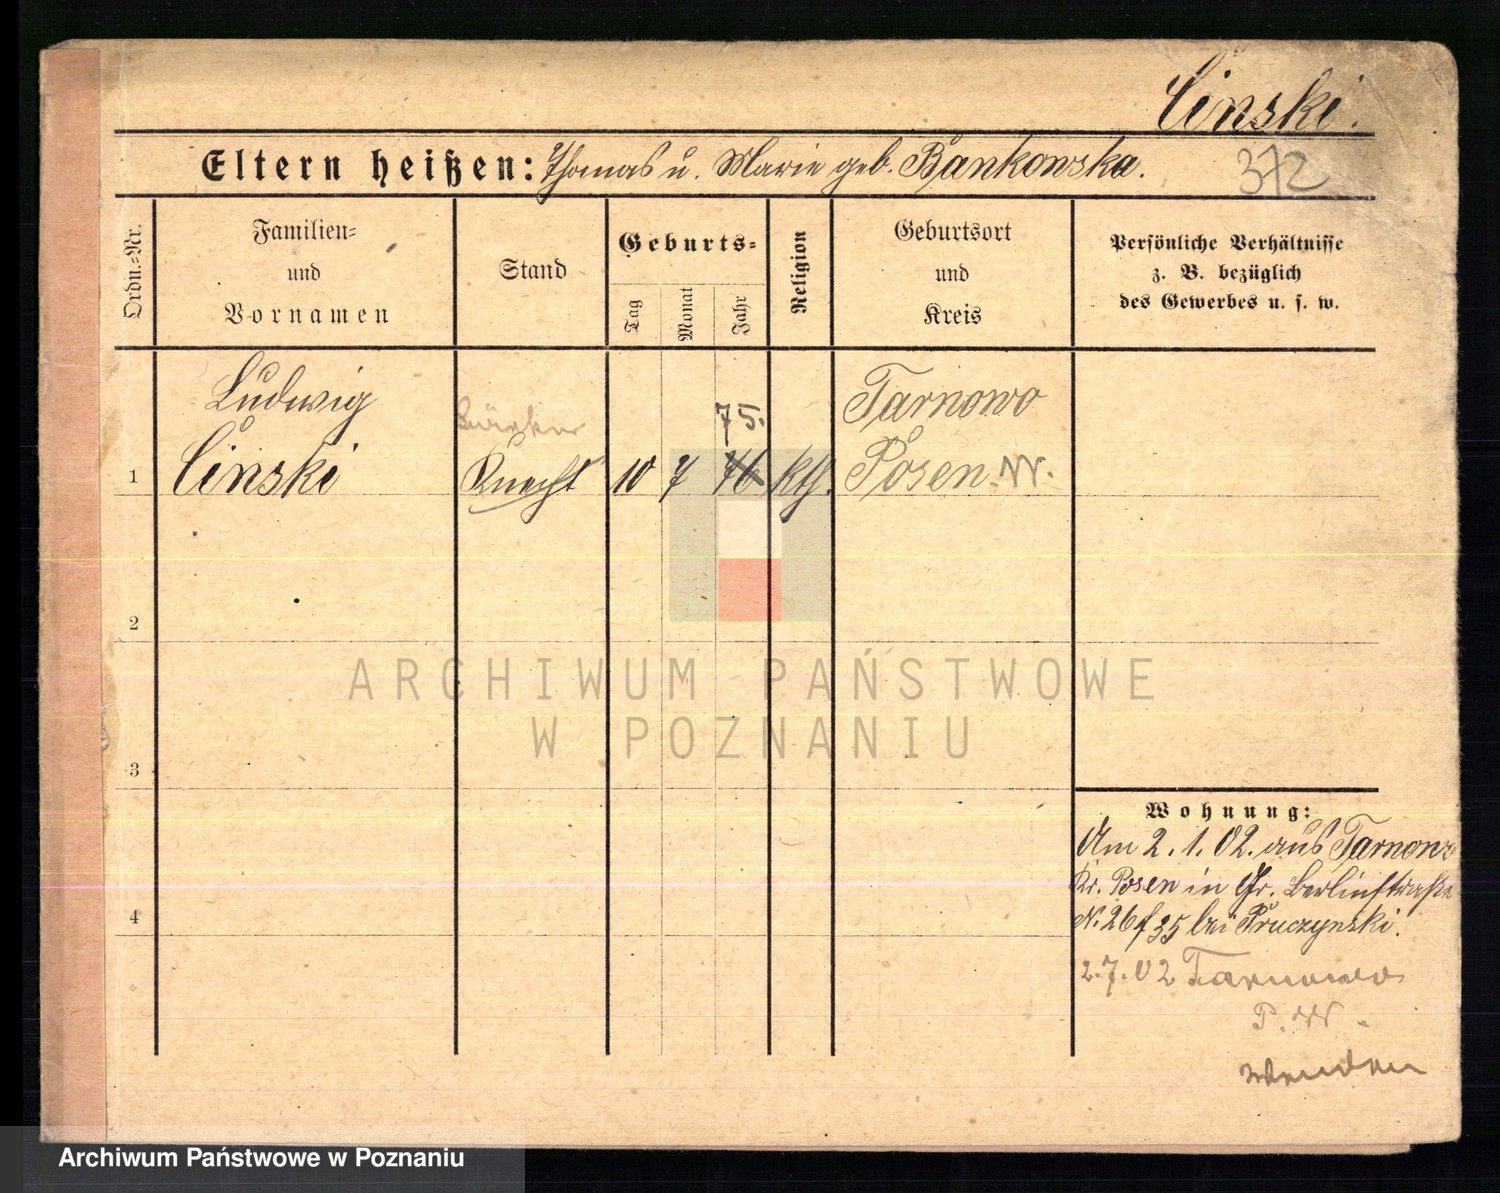 Cinski.
Eltern heißen: Thomas u. Marie geb. Bankowska.
372
Ordn.=Nr.
Familien=
und
Vornamen
Stand
Geburts=
Tag
Monat
Jahr
Religion
Geburtsort
und
Kreis
Persönliche Verhältnisse
z. B. bezüglich
des Gewerbes u. s. w.
Ludwig
75.
Tarnowo
1 Cinski Knecht 10 7 76 kth. Posen W.
2
3
4
ARCHIWUM PAŃSTWOWE
W POZNANIU
Wohnung:
Am 2.1.02. aus Tarnowo
Kr. Posen in Gr. Berlinstraße
N. 26 f 35 bei Pruczynski.
2.7.02 Tarnowo
P. W.
wenden
Archiwum Państwowe w Poznaniu